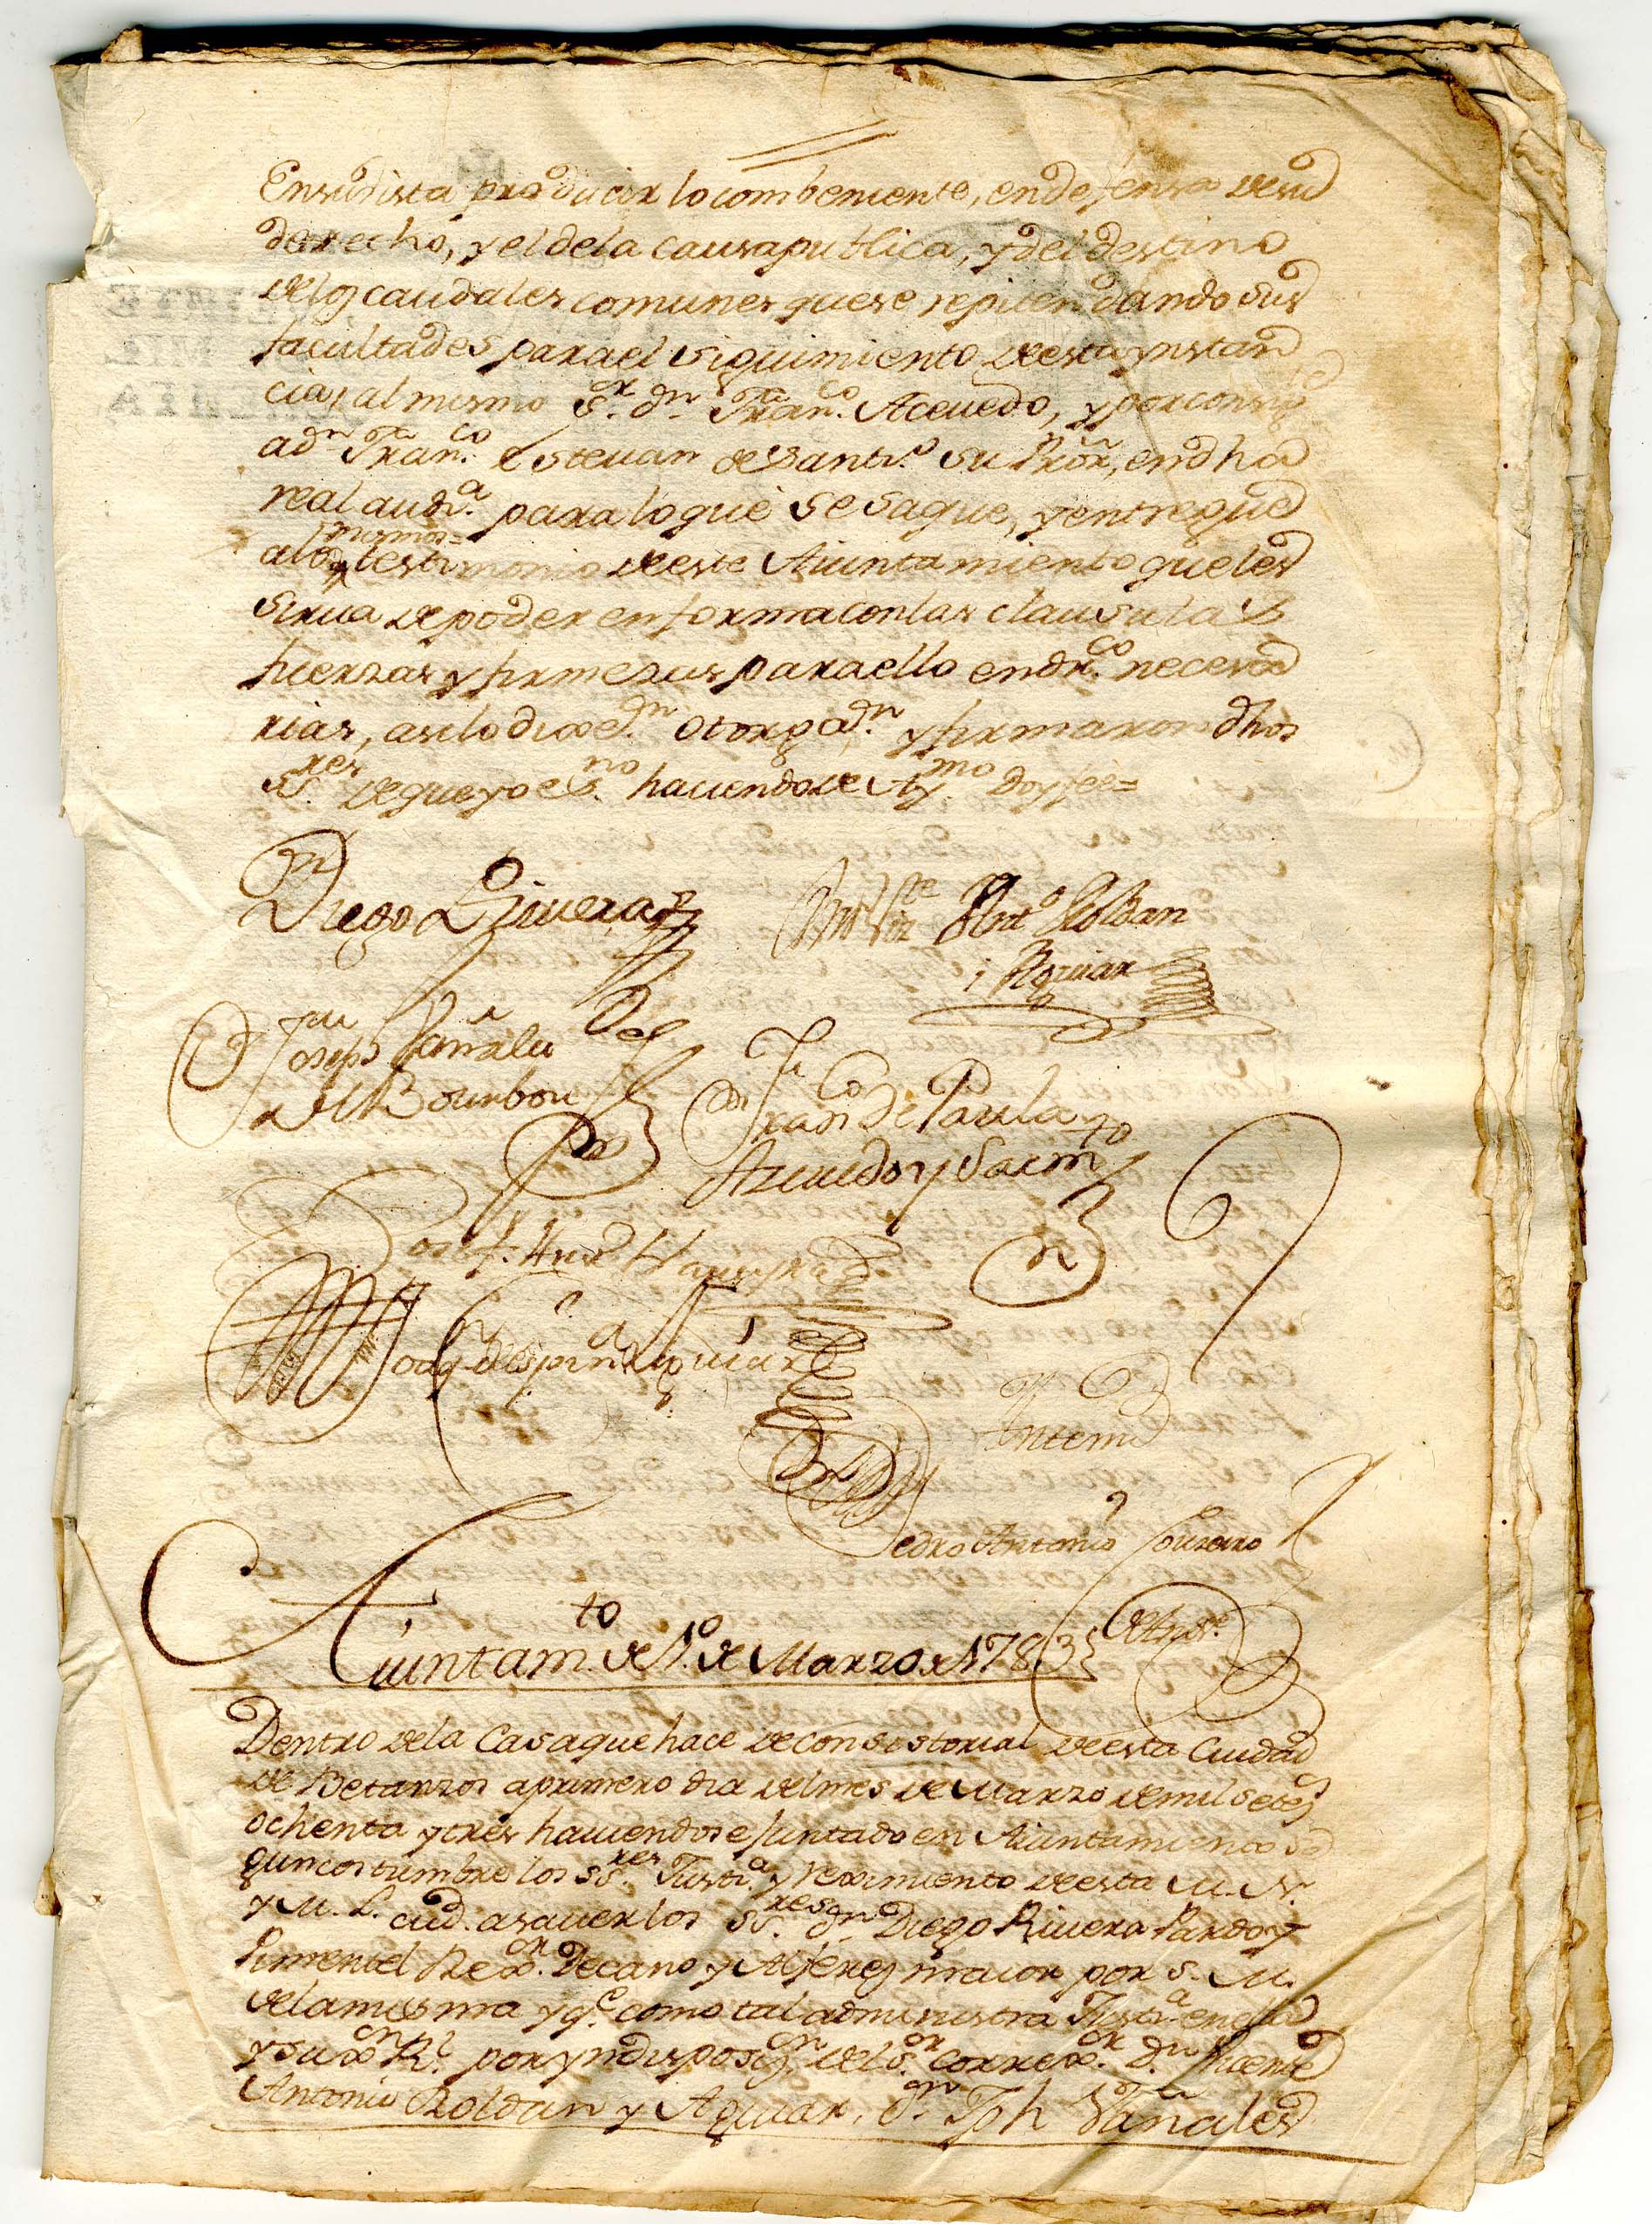 Ensuvista producir lo combeniente, en defensa desu
derecho, y el dela causa publica, y del destino
delos caudales comunes que se repiten dando sus
facultades para el siguimiento de esta ynstan
cia, al mismo S.r d.n Fran.co Acevedo, y por consig
a d.n Fran.co Estevan de Santi.o su Pror, en dha
real aud.a para lo que se saque, y entregue
mismos=
alos testimonio de este Aiuntamiento que les
sirva de poder en forma con las clausulas
fuerzas y firmezas para ello en dr.co necesa
rias, asilo dixe.n otorga.n y firmaron dhos
S.res de que yo es.no haciendo de Ay.mo doy fee=
Diego Rivera
Vicente Ant.o Roldan
i Aguiar
Joseph Vañales
de Bourbon
Fran.co de Paula
Azevedo y Sarm.to
Josef
Aguiar
Antemi
Pedro Antonio Couzeiro
Aiuntam.to de 1.o de Marzo de 1783
Dentro dela Casa que hace de consistorial de esta Ciudad
de Betanzos a primero dia del mes de Marzo de mil setez
ochenta y tres haviendose juntado en Aiuntamiento se
gun costumbre los SS.res Justi.a y reximiento de esta M. N.
y M. L. ciud. asaver los SS.res d.n Diego Rivera Pardo y
Pimentel Rex.or Decano y Alferez maior por S. M.
dela misma y q.e como tal administra Just.a en ella
y su xr.on R.l por yndisposiz.on del S.or correx.or d.n Vicente
Antonio Roldan y Aguiar, d.n Jph Vañales